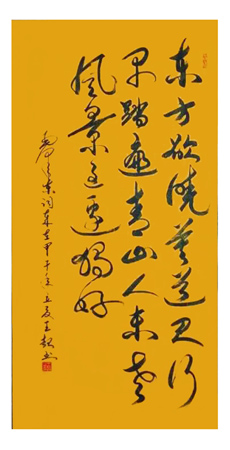 东方欲晓莫道君行
早踏遍青山人未老
风景这边独好
毛泽东词岁在甲午年立夏王书